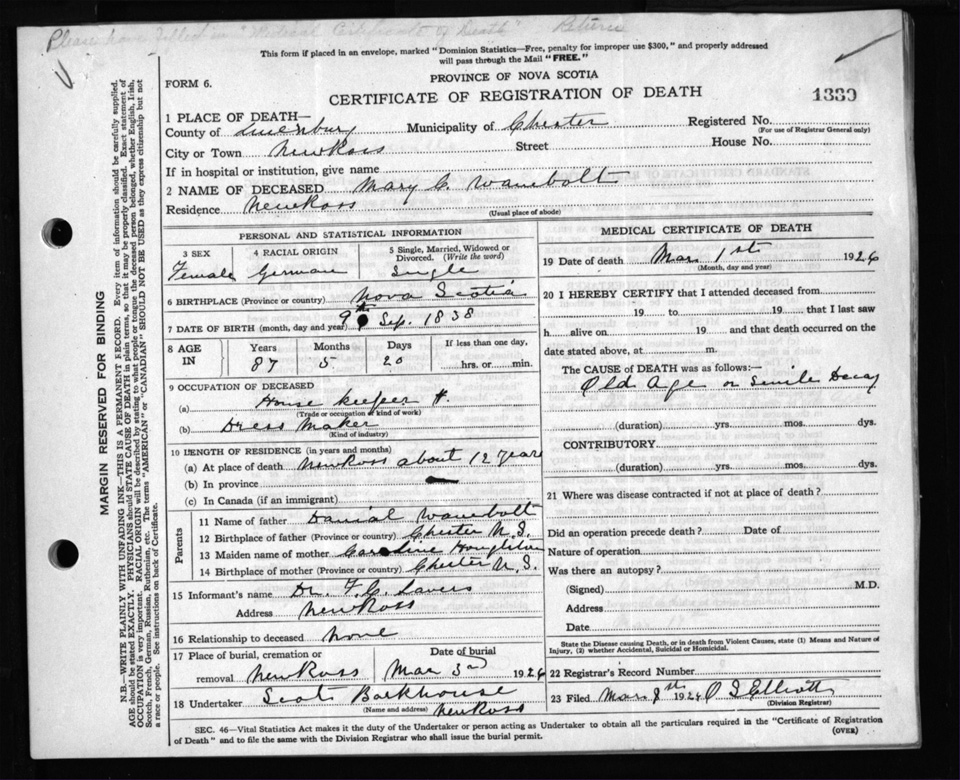 Please have filled in "Medical Certificate of Death" Return
This form if placed in an envelope, marked "Dominion Statistics—Free, penalty for improper use $300," and properly addressed
will pass through the Mail "FREE."
FORM 6.
PROVINCE OF NOVA SCOTIA
CERTIFICATE OF REGISTRATION OF DEATH
1 PLACE OF DEATH—
County of Lunenburg Municipality of Chester Registered No.
(For use of Registrar General only)
City or Town New Ross Street House No.
If in hospital or institution, give name
2 NAME OF DECEASED Mary C. Wambolt
Residence New Ross
(Usual place of abode)
PERSONAL AND STATISTICAL INFORMATION
3 SEX 4 RACIAL ORIGIN 5 Single, Married, Widowed or
Divorced. (Write the word)
Female German Single
6 BIRTHPLACE (Province or country) Nova Scotia
7 DATE OF BIRTH (month, day and year) 9th Sep. 1838
8 AGE IN Years Months Days If less than one day,
87 5 20 hrs. or min.
9 OCCUPATION OF DECEASED
(a) House keeper &
(Trade or occupation of kind of work)
(b) Dress Maker
(Kind of industry)
10 LENGTH OF RESIDENCE (in years and months)
(a) At place of death New Ross about 12 years
(b) In province
(c) In Canada (if an immigrant)
Parents
11 Name of father Danial Wambolt
12 Birthplace of father (Province or country) Chester N.S.
13 Maiden name of mother Caroline
14 Birthplace of mother (Province or country) Chester N.S.
15 Informant's name Dr. F. C. Lavers
Address New Ross
16 Relationship to deceased None
17 Place of burial, cremation or Date of burial
removal New Ross Mar 3rd 1926
18 Undertaker Scot Barkhouse
(Name and address) New Ross
MEDICAL CERTIFICATE OF DEATH
19 Date of death Mar 1st 1926
(Month, day and year)
20 I HEREBY CERTIFY that I attended deceased from
19 to 19 that I last saw
h alive on 19 and that death occurred on the
date stated above, at m.
The CAUSE of DEATH was as follows:—
Old Age or Senile Decay
(duration) yrs. mos. dys.
CONTRIBUTORY
(duration) yrs. mos. dys.
21 Where was disease contracted if not at place of death?
Did an operation precede death? Date of
Nature of operation
Was there an autopsy?
(Signed) M.D.
Address
Date
State the Disease causing Death, or in death from Violent Causes, state (1) Means and Nature of
Injury, (2) whether Accidental, Suicidal or Homicidal.
22 Registrar's Record Number
23 Filed Mar 8th 1926 O S Elliott
(Division Registrar)
SEC. 46—Vital Statistics Act makes it the duty of the Undertaker or person acting as Undertaker to obtain all the particulars required in the "Certificate of Registration
of Death" and to file the same with the Division Registrar who shall issue the burial permit.
(OVER)
MARGIN RESERVED FOR BINDING
N.B.—WRITE PLAINLY WITH UNFADING INK—THIS IS A PERMANENT RECORD. Every item of information should be carefully supplied.
AGE should be stated EXACTLY. PHYSICIANS should STATE CAUSE OF DEATH in plain terms, so that it may be properly classified. Exact statement of
OCCUPATION is very important. RACIAL ORIGIN will be described by stating to what people or tongue the deceased person belonged, whether English, Irish,
Scotch, French, German, Russian, Ruthenian, etc. The terms "AMERICAN" or "CANADIAN" SHOULD NOT BE USED as they express citizenship but not
a race or people. See instructions on back of Certificate.